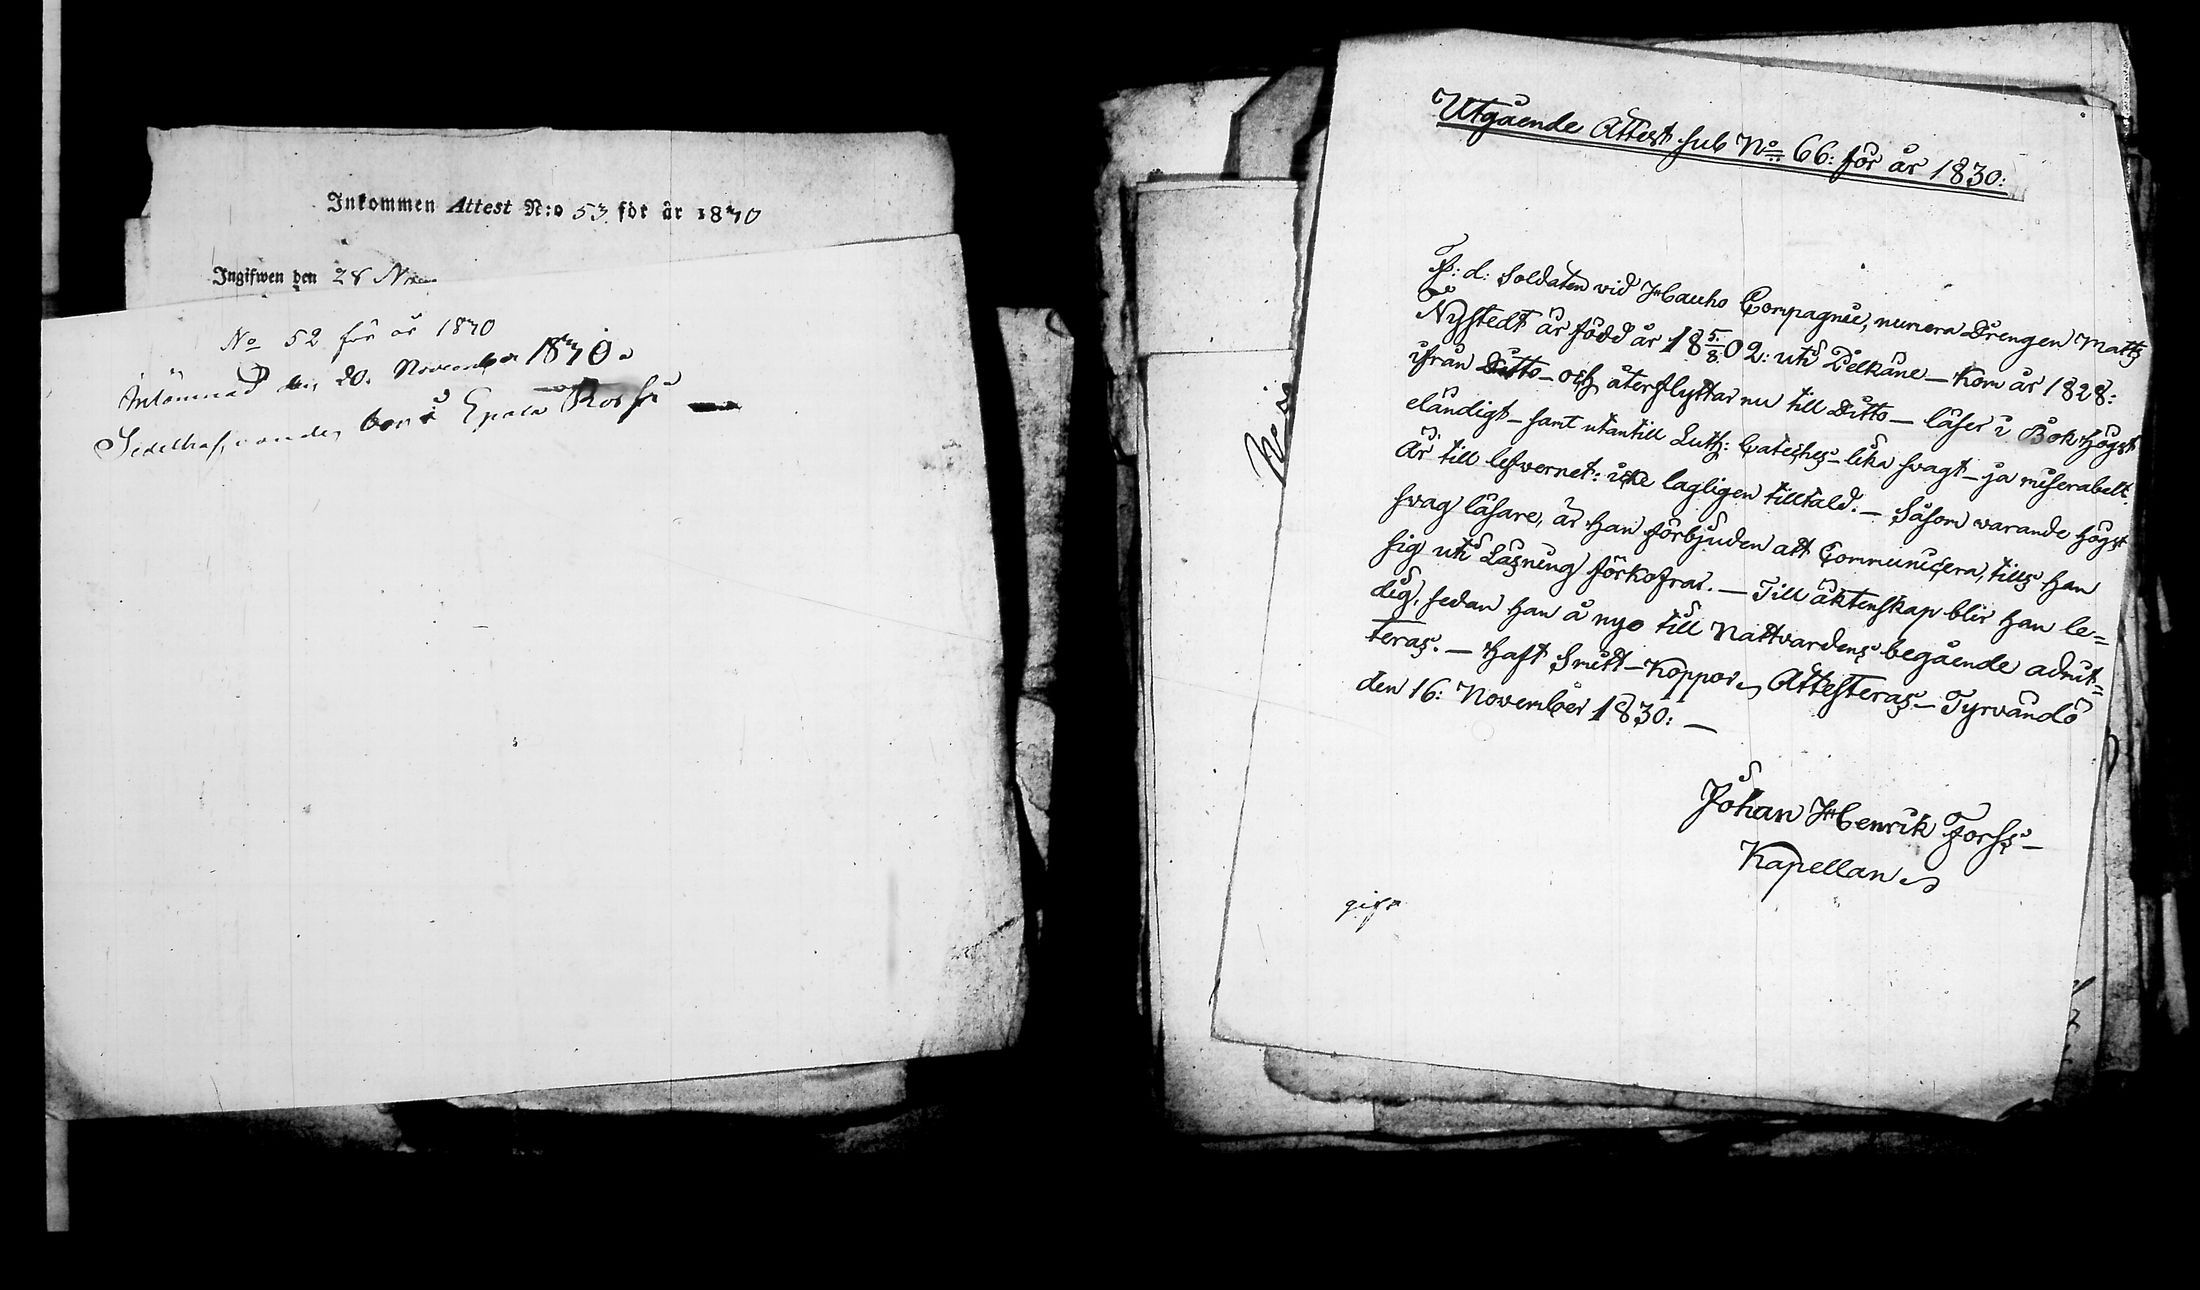 Inkommen Attest N:o 53 för år 1870
Ingifwen den 28 Nov
No 52 för år 1870
Inlämnad den 20. November 1870.
Utgående Attest sub No 66: för år 1830:
F: d: Soldaten vid Hauho Compagnie, numera Drengen Matts
Nystedt är född år 18 5/8 02: uti Pelkäne – Kom år 1828:
ifrån Ditto – och återflyttar nu till Ditto – läser i Bok högst
eländigt – samt utantill Luth: Cateches – lika svagt – ja miserabelt.
Är till lefvernet: icke lagligen tilltald. – Såsom varande högst
svag läsare, är han förbjuden att Communicera, tills han
sig uti Läsning förkofrar. – Till äktenskap blir han le=
dig, sedan han å nyo till Nattvardens begående admit=
teras. – Haft Smitt-Koppor, Attesteras – Tyrvändö
den 16: November 1830: –
Johan Henrik Forss –
Kapellan